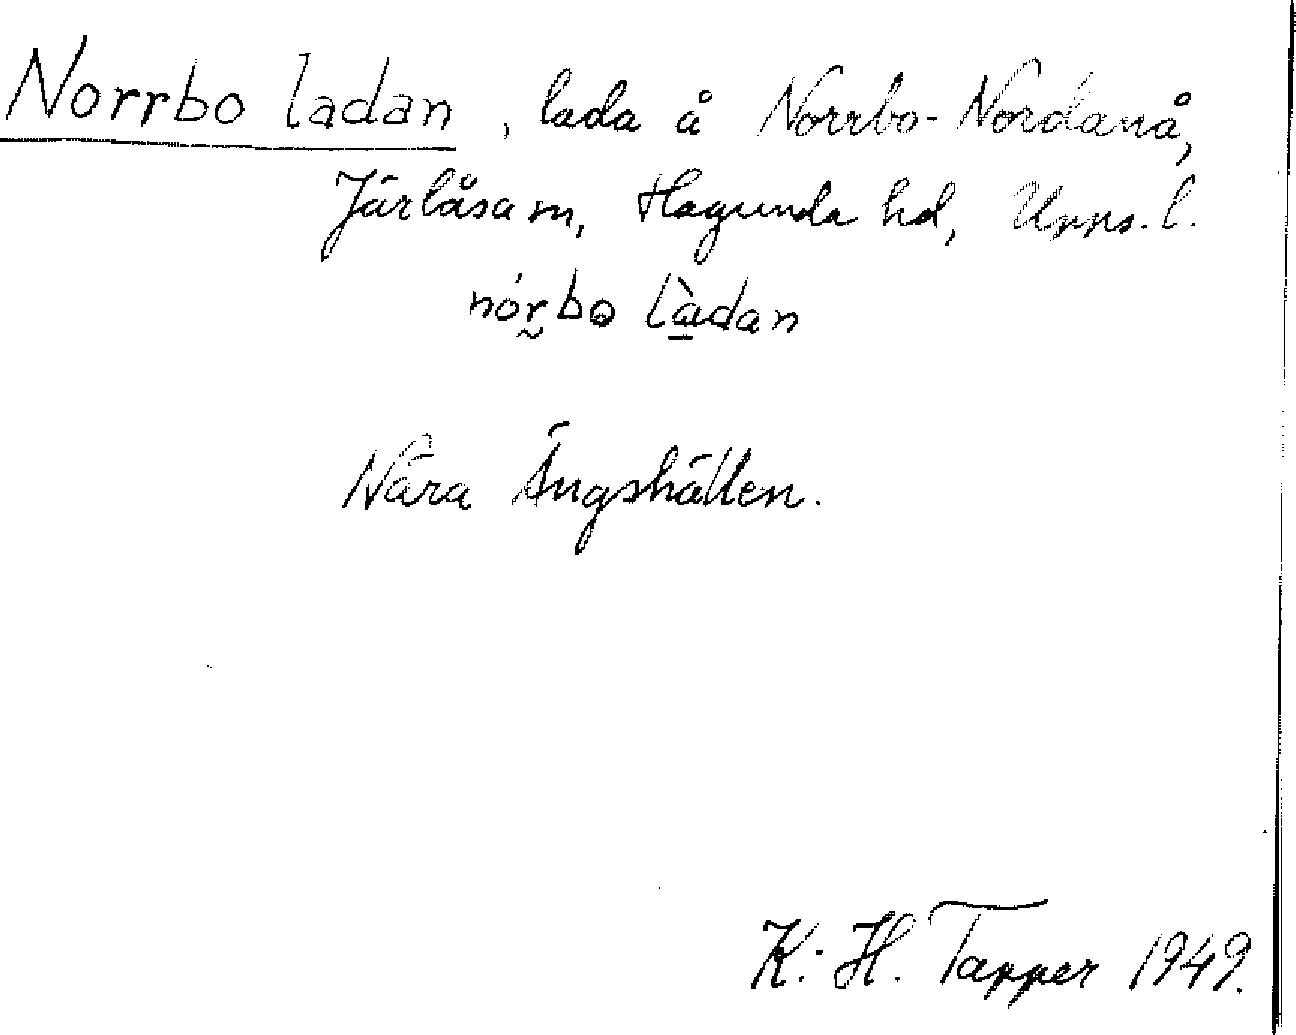 Norrbo ladan, lada å Norrbo-Nordanå,
Järlåsa sn, Hagunda hd, Upps. l.
nórbo làdan
Nära Ängshällen.
K.-H. Tapper 1949.